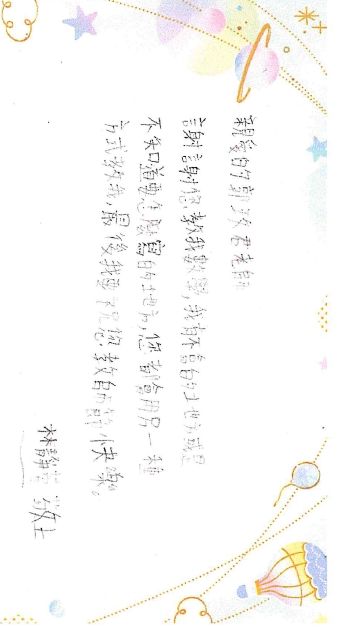 親愛的郭淑君老師
謝謝您教我數學,我有不會的地方或是
不知道要怎麼寫的地方,您都會用另一種
方式教我,最後我要祝您:教師節快樂。
林靜 敬上